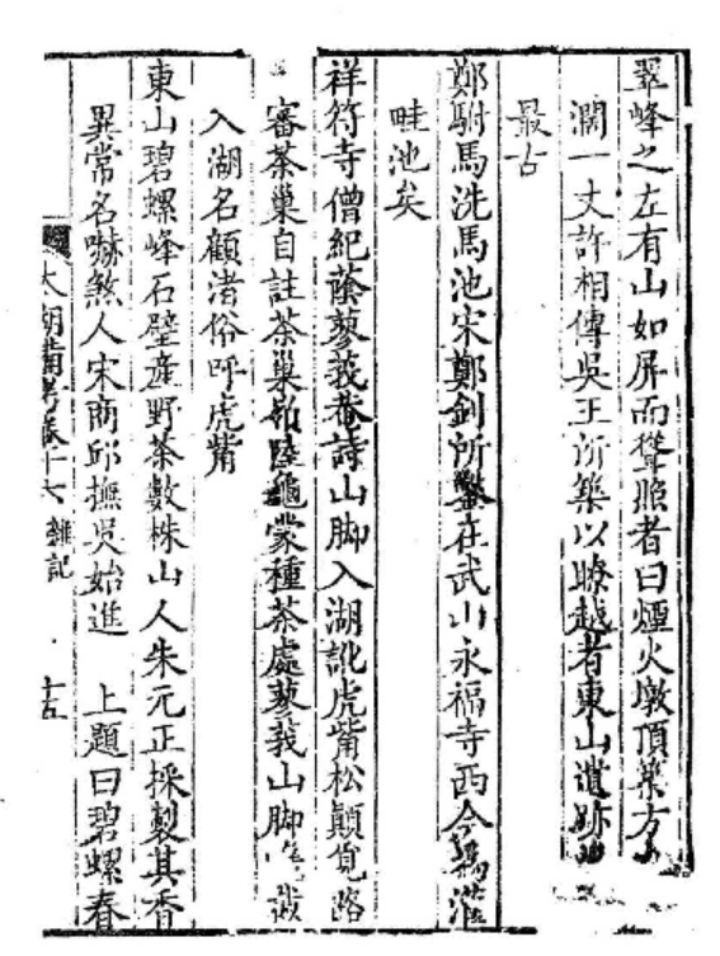 翠峰之左有山如屏而聳照者曰煙火墩頂築方
濶一丈許相傳吳王所築以瞭越者東山遺跡
最古
鄭駙馬洗馬池宋鄭釗所鑿在武山永福寺西今為灌
畦池矣
祥符寺僧紀蔭蓼莪菴詩山脚入湖訛虎嘴松顛覓路
審茶巢自註茶巢
陸龜蒙種茶處蓼莪山脚
入湖名顧渚俗呼虎嘴
東山碧螺峰石壁產野茶數株山人朱元正採製其香
異常名嚇煞人宋商邱撫吳始進　上題曰碧螺春
太湖備考卷十六 雜記 十五